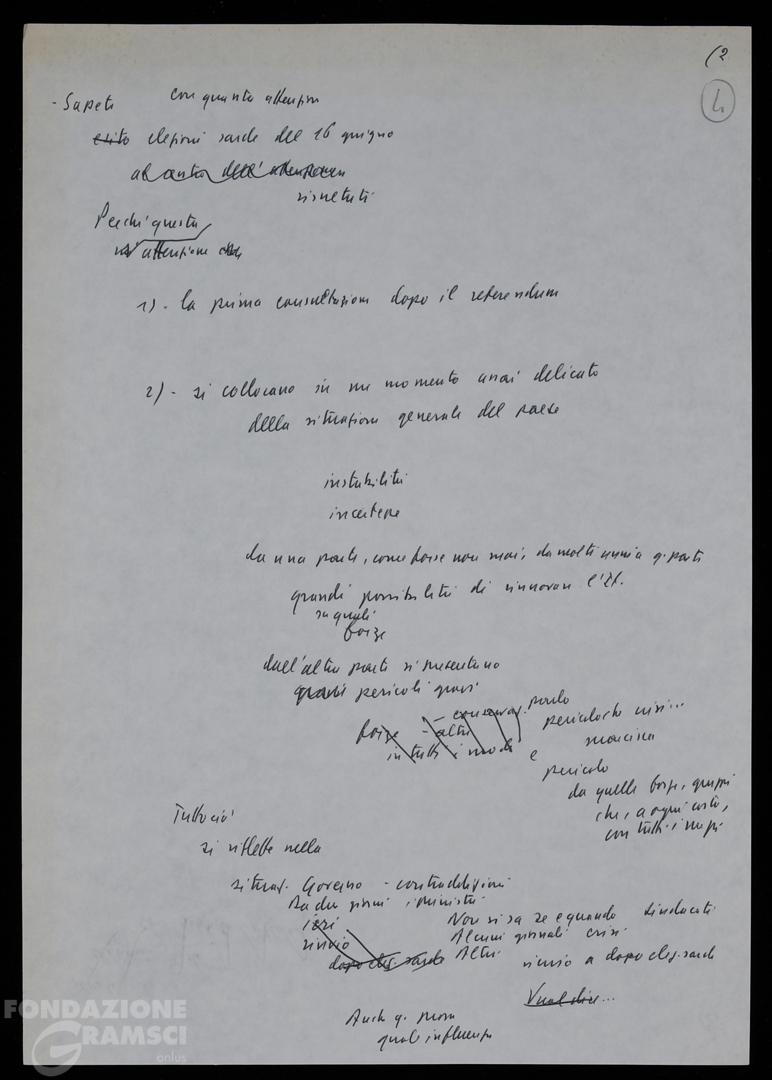 (2
4
- Sapete con quanta attenzione
esito elezioni sarde del 16 giugno
al centro dell'attenzione
risultati
Perché questa
attenzione
1) - la prima consultazione dopo il referendum
2) - si collocano in un momento assai delicato
della situazione generale del paese
instabilità
incertezze
da una parte, come forse non mai, da molti anni a q. parte
grandi possibilità di rinnovare l'It.
su quali
forze
dall'altra parte si presentano
gravi pericoli gravi
forze - altri
in tutti i modi e
pericolo che crisi...
marcisca
pericolo
da quelle forze, gruppi
che, a ogni costo,
con tutti i mezzi
Tutto ciò
si riflette nella
situaz. Governo - contraddizioni
Da due giorni i ministri
ieri
rinvio
dopo elez. sarde
Non si sa se e quando sindacati
Alcuni giornali crisi
Altri rinvio a dopo elez. sarde
Vuol dire...
Anche q. prova
quale influenza
FONDAZIONE
GRAMSCI
onlus